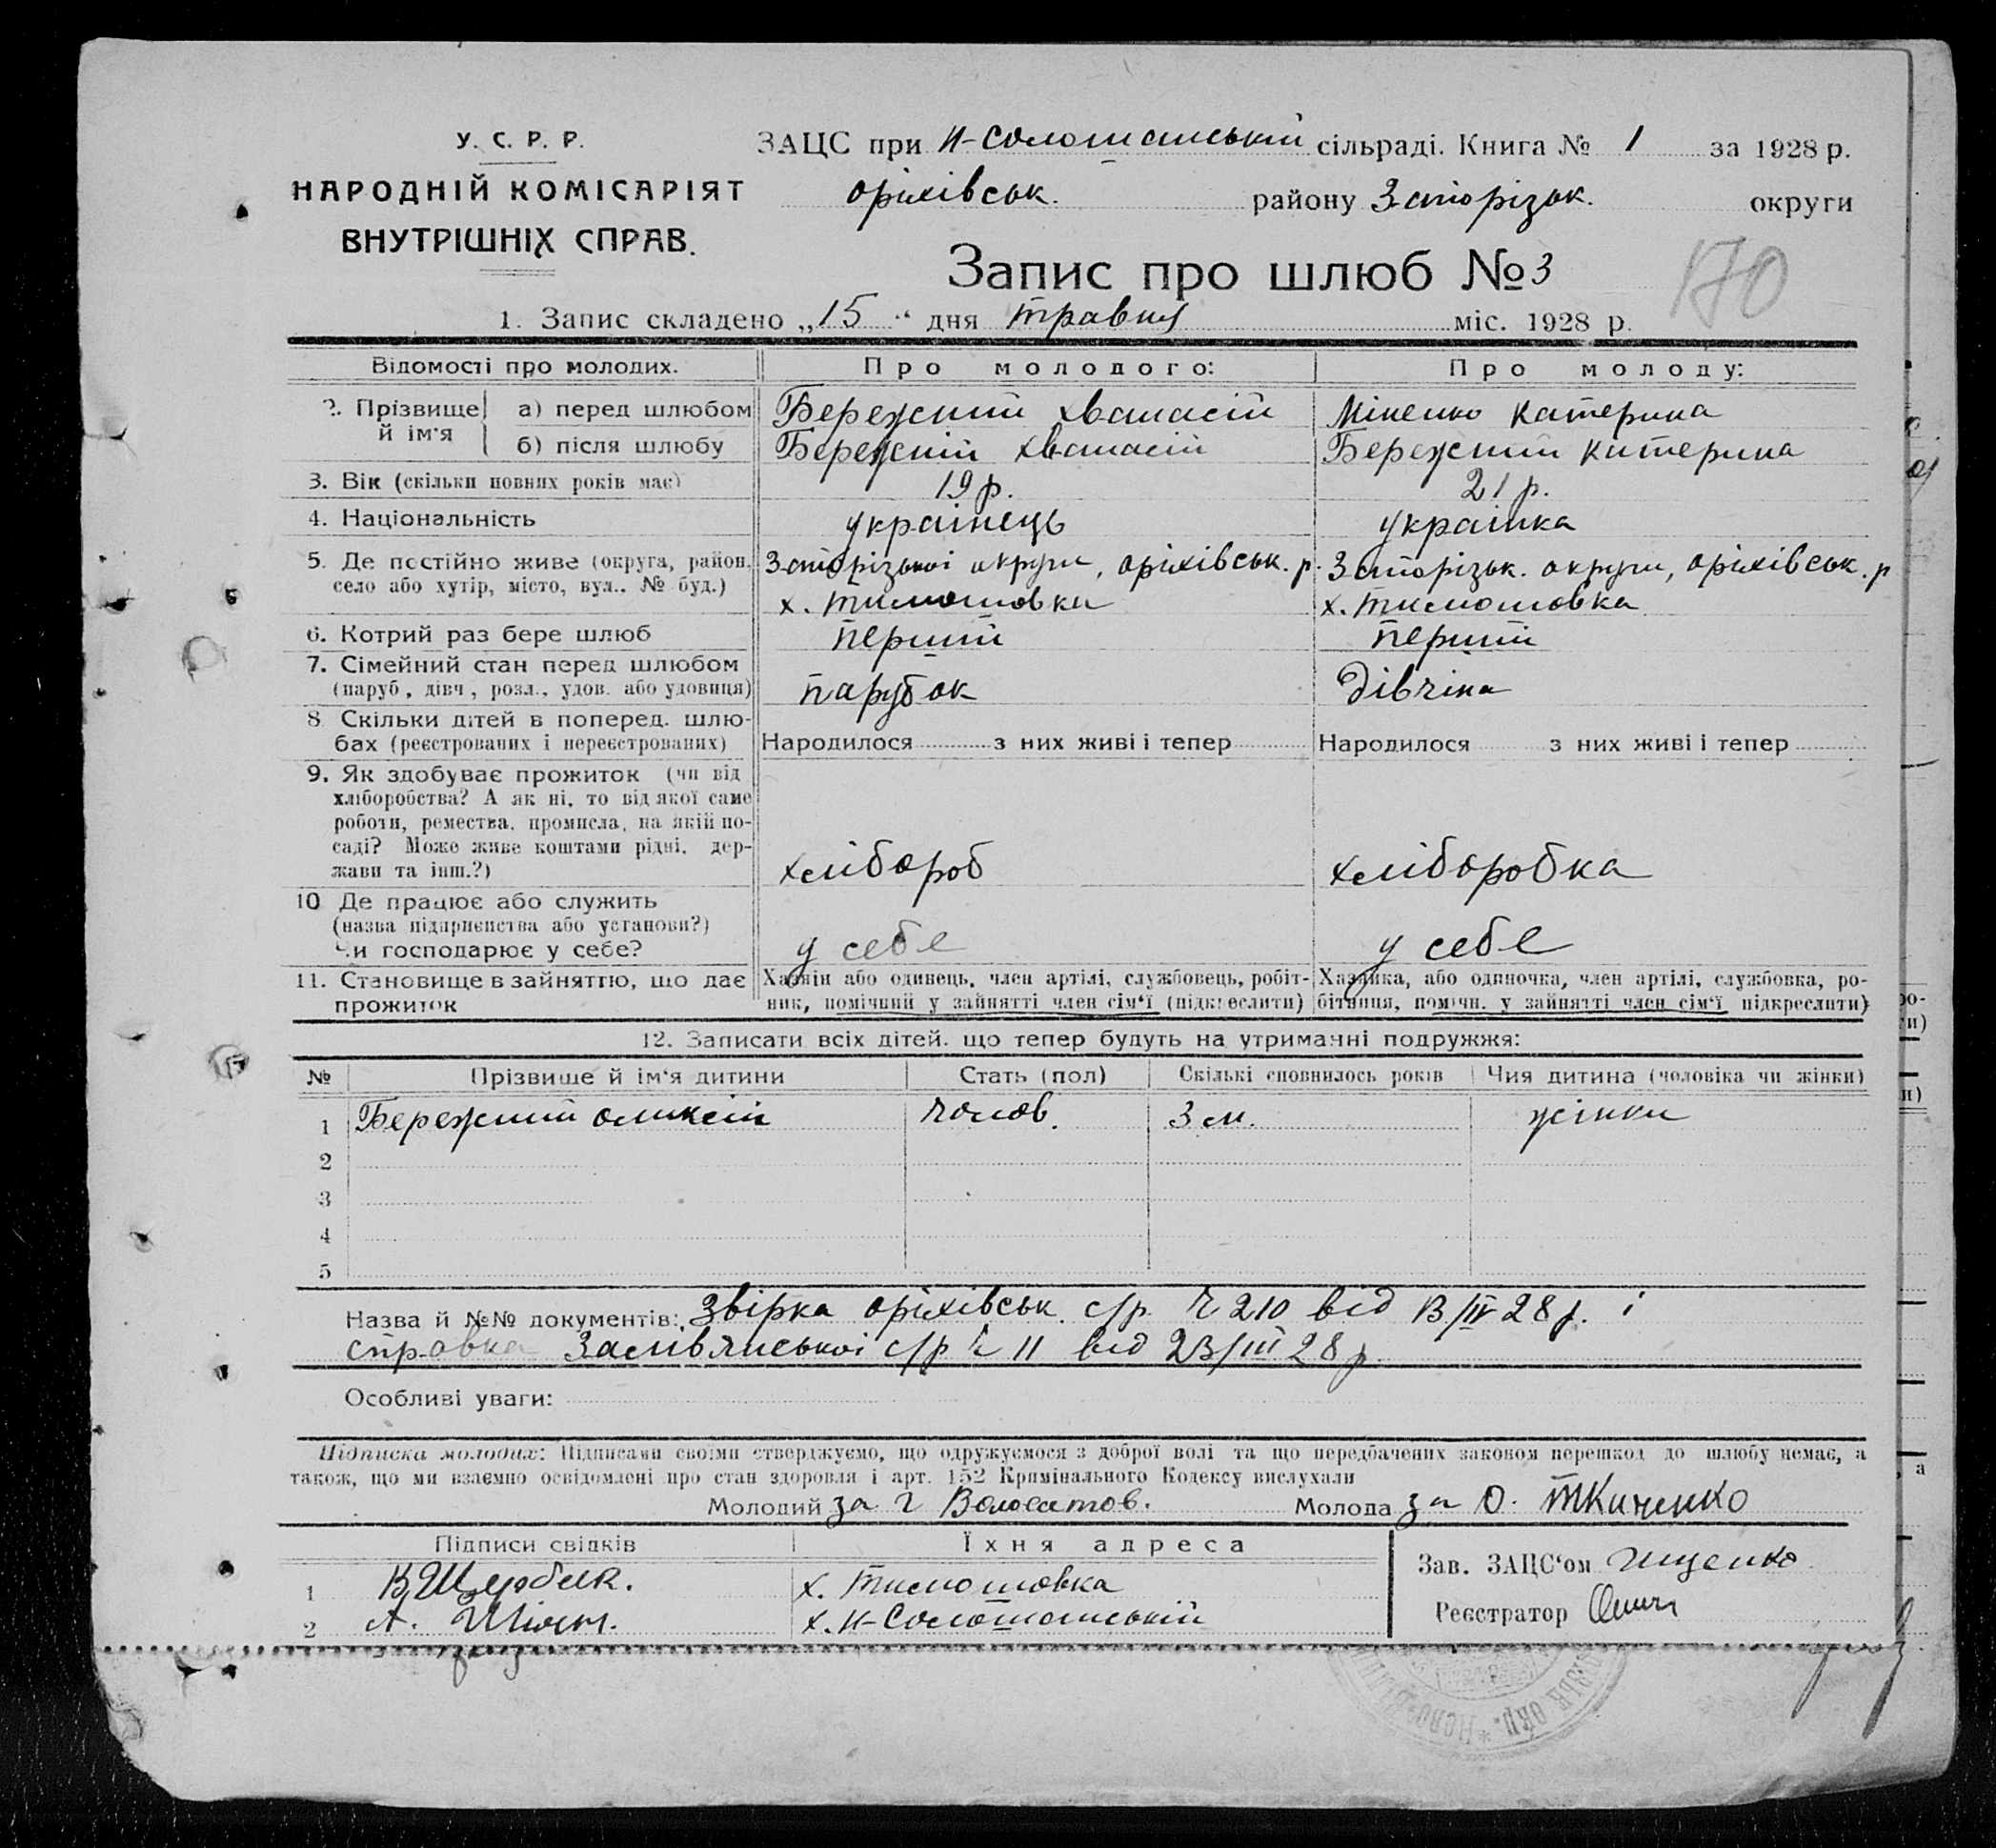 У. С. Р. Р.
НАРОДНІЙ КОМІСАРІЯТ
ВНУТРІШНІХ СПРАВ.
ЗАЦС при сільраді. Книга № 1 за 1928 р.
Оріхівськ. району Запорізьк. округи
Запис про шлюб № 3
170
1. Запис складено „15“ дня травня міс. 1928 р.
Відомості про молодих. Про молодого: Про молоду:
2. Прізвище й ім'я
а) перед шлюбом Бережний Хванасій Міненко Катерина
б) після шлюбу Бережній Хванасій Бережний Катерина
3. Вік (скільки повних років має) 19 р. 21 р.
4. Національність українець українка
5. Де постійно живе (округа, район, Запорізької округи, Оріхівськ. р. Запорізьк. округи, Оріхівськ. р
село або хутір, місто, вул.. № буд.) х. Тимошовка х. Тимошовка
6. Котрий раз бере шлюб перший перший
7. Сімейний стан перед шлюбом
(паруб, дівч, розл., удов. або удовиця) парубок дівчіна
8 Скільки дітей в поперед. шлю-
бах (реєстрованих і нереєстрованих) Народилося з них живі і тепер Народилося з них живі і тепер
9. Як здобуває прожиток (чи від
хліборобства? А як ні, то від якої саме
роботи, ремества, промисла, на якій по-
саді? Може живе коштами рідні, дер-
жави та інш.?) хлібороб хліборобка
10 Де працює або служить
(назва підприємства або установи?)
Чи господарює у себе? у себе у себе
11. Становище в зайняттю, що дає прожиток
Хазяїн або одинець, член артілі, службовець, робіт-
ник, помічний у зайнятті член сім'ї (підкреслити)
Хазяйка, або одиночка, член артілі, службовка, ро-
бітниця, помічн. у зайнятті член сім'ї підкреслити)
12. Записати всіх дітей. що тепер будуть на утриманні подружжя:
№ Прізвище й ім'я дитини Стать (пол) Скількі сповнилось років Чия дитина (чоловіка чи жінки)
1 Бережний Оликсій чолов. 3 м. жінки
2
3
4
5
Назва й №№ документів: Звірка Оріхівськ. с/р. Ч 210 від 13/IV 28 р. і
справка с/р Ч 11 від 23/III 28 р.
Особливі уваги:
Підписка молодих: Підписами своїми стверджуємо, що одружуємося з доброї волі та що передбачених законом перешкод до шлюбу немає, а
також, що ми взаємно освідомлені про стан здоровля і арт. 152 Крімінального Кодексу вислухали
Молодий за Г Волосатов. Молода за О. Ткаченко
Підписи свідків Їхня адреса
1 В. Щербак. х. Тимошовка
2 А. х.
Зав. ЗАЦС'ом Іщенко
Реєстратор